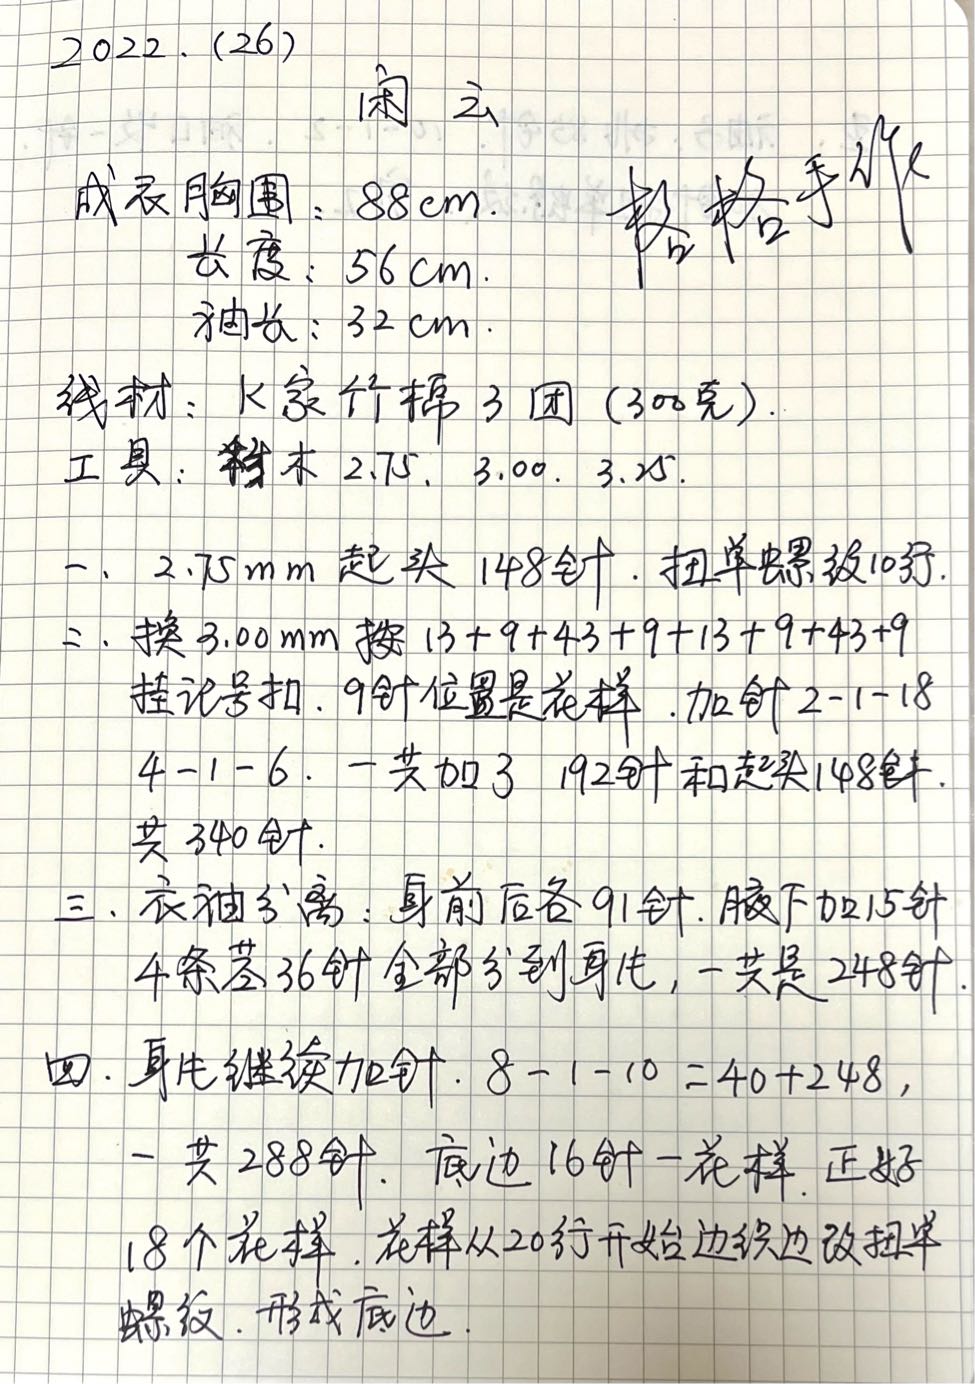 2022.(26)
闲云
成衣胸围：88cm.
格格手作
长度：56cm.
袖长：32cm.
线材：K家竹棉3团(300克).
工具：木2.75. 3.00. 3.25.
一、2.75mm起头148针.扭单螺纹10行.
二.换3.00mm按13+9+43+9+13+9+43+9
挂记号扣.9针位置是花样.加针2-1-18
4-1-6.一共加了192针和起头148针.
共340针.
三.衣袖分离：身前后各91针.腋下加15针
4条茎36针全部分到身片,一共是248针.
四.身片继续加针.8-1-10=40+248,
一共288针.底边16针一花样.正好
18个花样.花样从20行开始边织边改扭单
螺纹.形成底边.